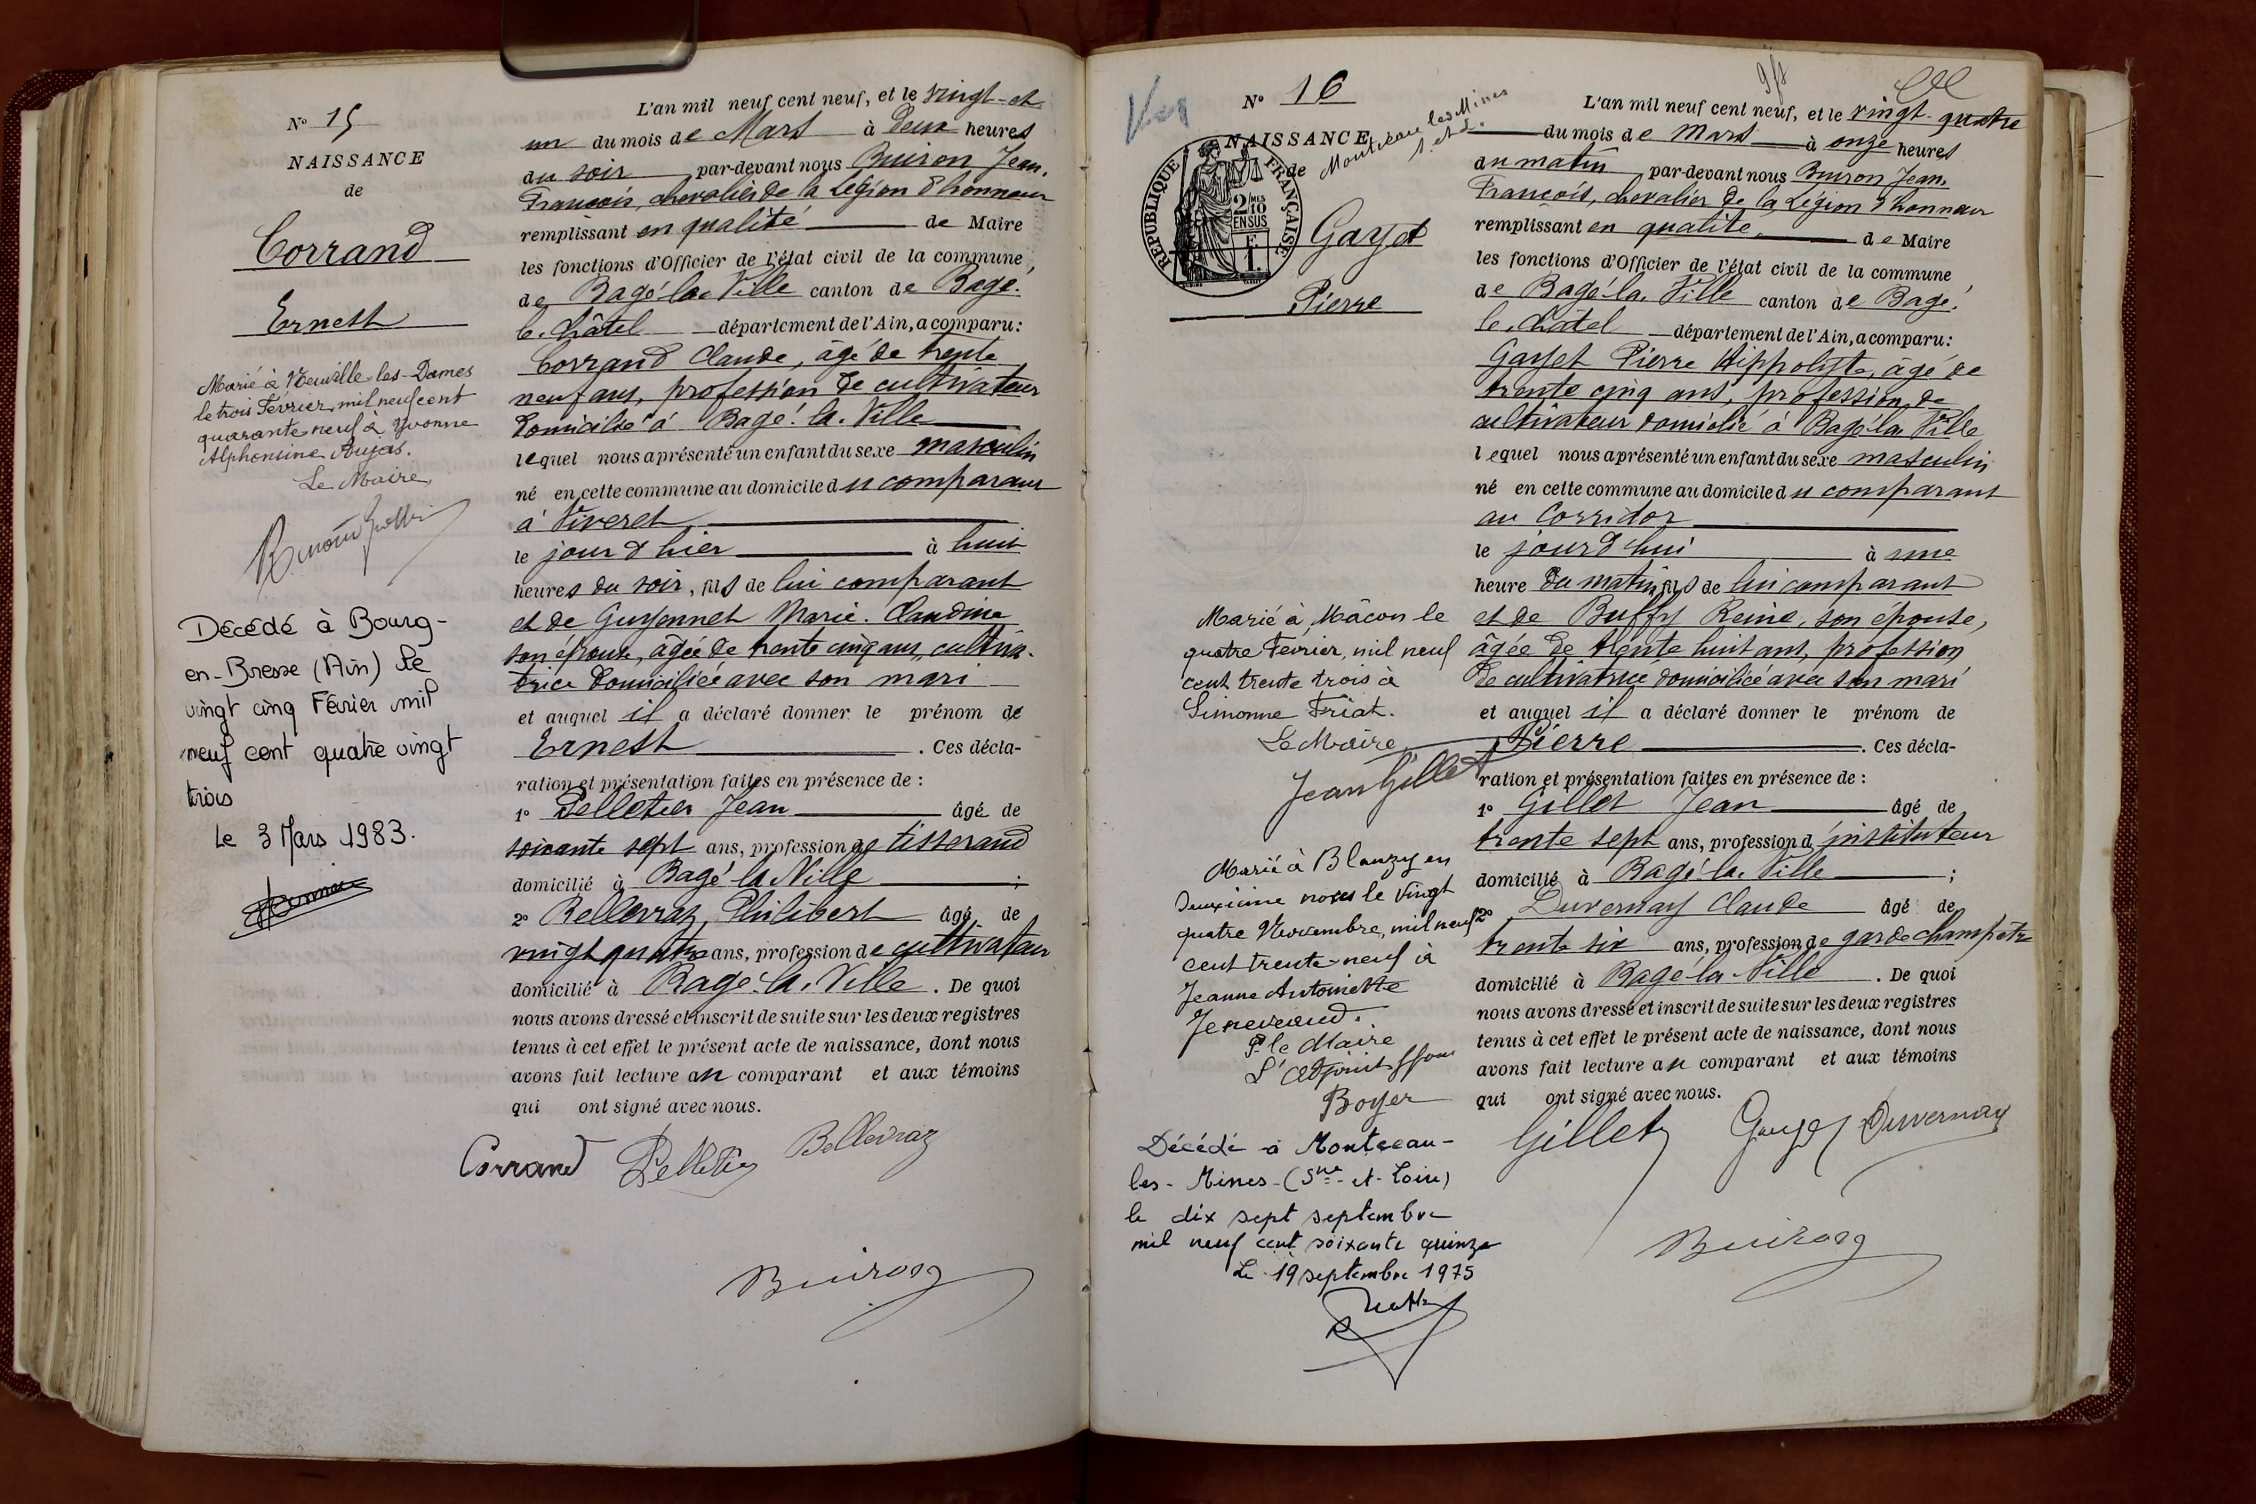 N° 15
NAISSANCE
de
Corrand
Ernest
Marié à Neuville-les-Dames
le trois Février mil neuf cent
quarante neuf à Yvonne
Alphonsine Aujas.
Le Maire,
Décédé à Bourg-
en-Bresse (Ain) le
vingt cinq Février mil
neuf cent quatre vingt
trois
Le 3 Mars 1983.
L'an mil neuf cent neuf, et le vingt-et-
un du mois de Mars à Deux heures
du soir par-devant nous Buiron Jean.
François, chevalier de la Légion d'honneur
remplissant en qualité de Maire
les fonctions d'Officier de l'état civil de la commune,
de Bagé-la-Ville canton de Bagé.
le-Châtel département de l'Ain, a comparu:
Corrand Claude, âgé de trente
neuf ans, profession de cultivateur
domicilié à Bagé-la-Ville
lequel nous a présenté un enfant du sexe masculin
né en cette commune au domicile du comparant
à Viveret
le jour d'hier à huit
heures du soir, fils de lui comparant
et de Guyonnet Marie-Claudine
son épouse, âgée de trente cinq ans, cultiva-
trice domiciliée avec son mari
et auquel il a déclaré donner le prénom de
Ernest. Ces décla-
ration et présentation faites en présence de :
1° Pelletier Jean âgé de
soixante sept ans, profession de tisserand
domicilié à Bagé la Ville ;
2° Bellevrat Philibert âgé de
vingt quatre ans, profession de cultivateur
domicilié à Bagé-la-Ville. De quoi
nous avons dressé et inscrit de suite sur les deux registres
tenus à cet effet le présent acte de naissance, dont nous
avons fait lecture au comparant et aux témoins
qui ont signé avec nous.
Corrand Pelletier Bellevraz
Buiron
N° 16
NAISSANCE
de
Montceau les Mines
S. et L.
RÉPUBLIQUE FRANÇAISE
2/10
EN SUS
Gayet
Pierre
Marié à Mâcon le
quatre Février, mil neuf
cent trente trois à
Simonne Friat.
Le Maire,
Jean Gillet
Marié à Blanzy en
deuxième noces le vingt
quatre Novembre, mil neuf
cent trente-neuf à
Jeanne Antoinette
P. le Maire
L'Adjoint
Boyer
Décédé à Montceau-
les-Mines-(Sne-et-Loire)
le dix sept septembre
mil neuf cent soixante quinze
Le 19 septembre 1975
L'an mil neuf cent neuf, et le vingt-quatre
du mois de Mars à onze heures
du matin par-devant nous Buiron Jean.
François, chevalier de la Légion d'honneur
remplissant en qualité de Maire
les fonctions d'Officier de l'état civil de la commune
de Bagé-la-Ville canton de Bagé.
le-Châtel département de l'Ain, a comparu:
Gayet Pierre Hippolyte, âgé de
trente cinq ans, profession de
cultivateur domicilié à Bagé-la-Ville
lequel nous a présenté un enfant du sexe masculin
né en cette commune au domicile du comparant
au Corridor
le jour d'hui à une
heure du matin, fils de lui comparant
et de Buffy Reine, son épouse,
âgée de trente huit ans, profession
de cultivatrice domiciliée avec son mari
et auquel il a déclaré donner le prénom de
Pierre. Ces décla-
ration et présentation faites en présence de :
1° Gillet Jean âgé de
trente sept ans, profession d'instituteur
domicilié à Bagé-la-Ville ;
2° Duvernay Claude âgé de
trente six ans, profession de garde champêtre
domicilié à Bagé-la-Ville. De quoi
nous avons dressé et inscrit de suite sur les deux registres
tenus à cet effet le présent acte de naissance, dont nous
avons fait lecture au comparant et aux témoins
qui ont signé avec nous.
Gillet Gayet Duvernay
Buiron